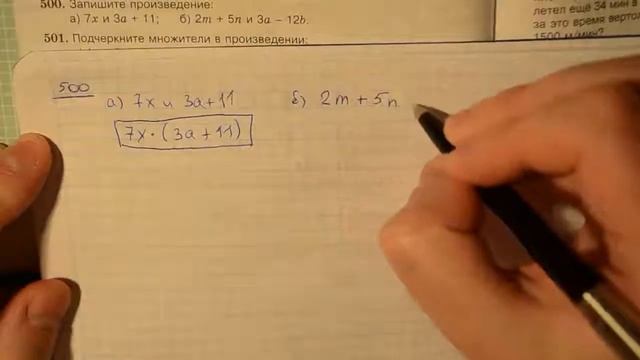 500. Запишите произведение:
а) 7x и 3a + 11; б) 2m + 5n и 3a − 12b.
501. Подчеркните множители в произведении:
летел ещё 34 мин в
за это время верто
1500 м/мин?
500
а) 7x и 3a+11
7x·(3a+11)
б) 2m+5n